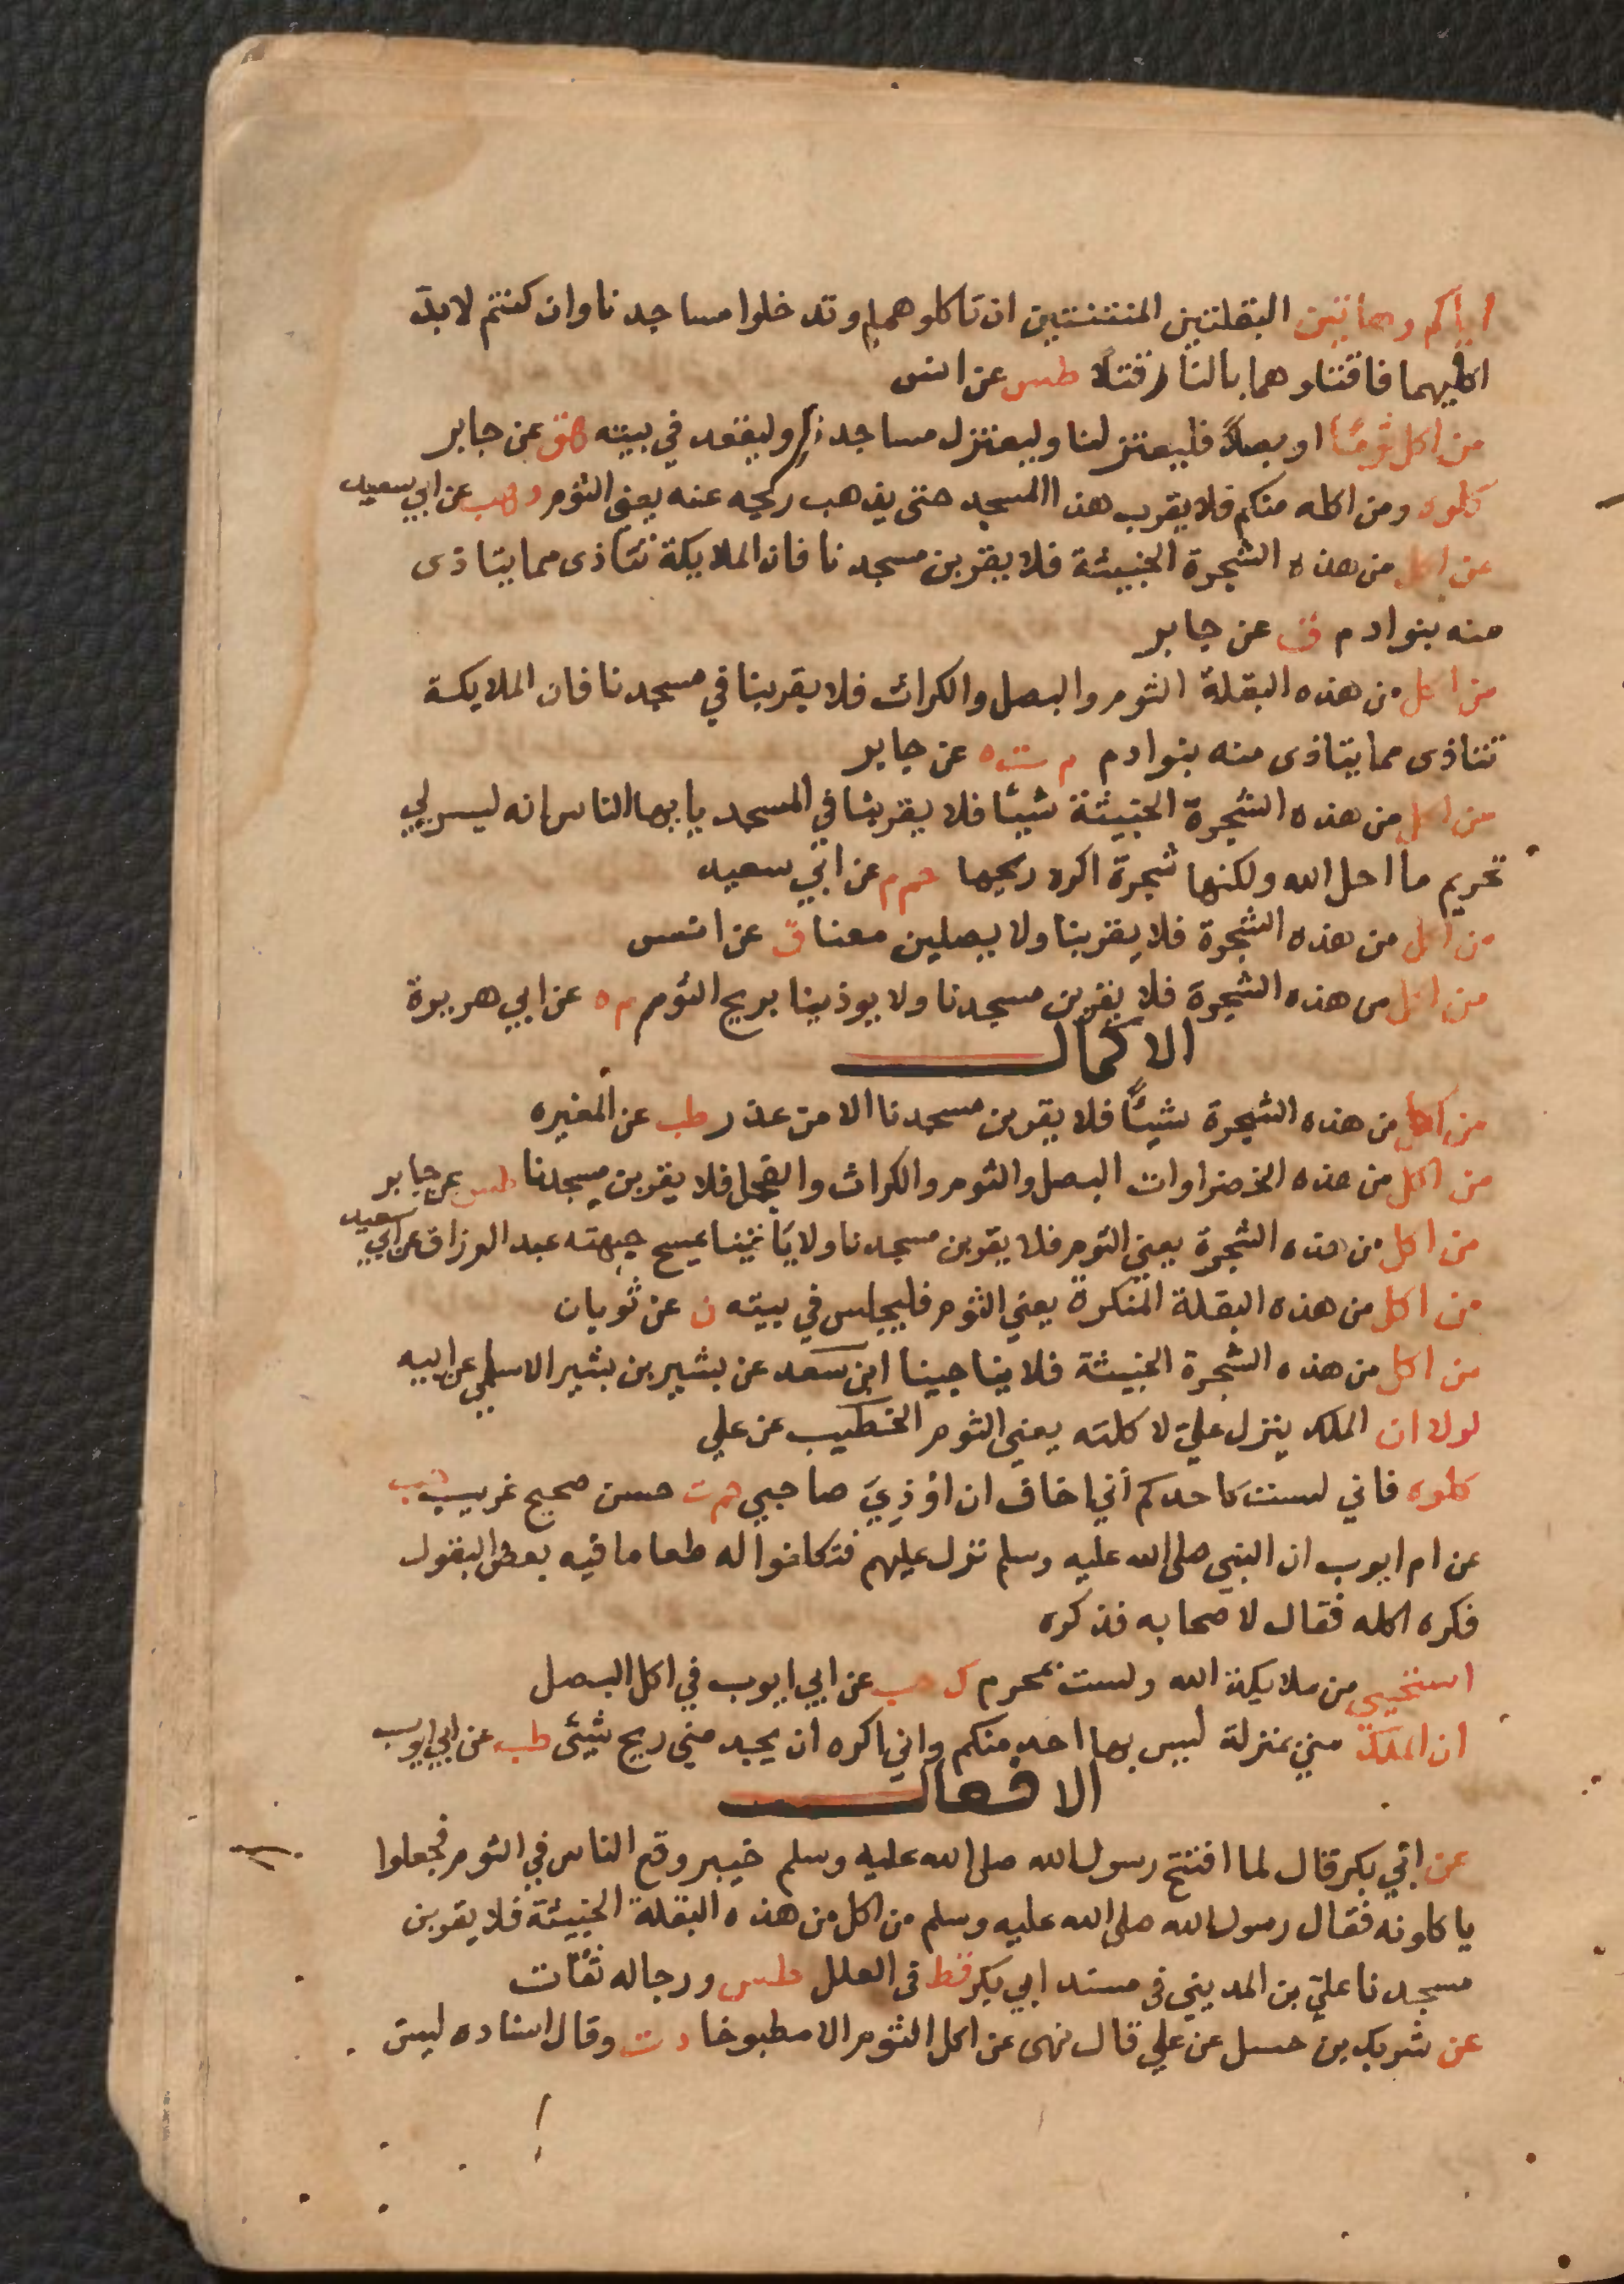 اياكم وهاتين البقلتين المنتنتين ان تاكلوهما وتدخلوا مساجدنا وان كنتم لابد
اكليهما فاقتلوهما بالنار قتلا طس عن انس
من اكل ثوما او بصلا فليعتزلنا وليعتزل مساجدنا وليقعد في بيته ق عن جابر
كلوه ومن اكله منكم فلا يقرب هذا المسجد حتى يذهب ريحه عنه يعني الثوم د هب عن ابي سعيد
من اكل من هذه الشجرة الخبيثة فلا يقربن مسجدنا فان الملايكة تتاذى مما يتاذى
منه بنوادم ق عن جابر
من اكل من هذه البقلة الثوم والبصل والكراث فلا يقربنا في مسجدنا فان الملايكة
تتاذى مما يتاذى منه بنوادم م ت ه عن جابر
من اكل من هذه الشجرة الخبيثة شيئا فلا يقربنا في المسجد يايها الناس انه ليس لي
تحريم ما احل الله ولكنها شجرة اكره ريحها حم م عن ابي سعيد
من اكل من هذه الشجرة فلا يقربنا ولا يصلين معنا ق عن انس
من اكل من هذه الشجرة فلا يقربن مسجدنا ولا يوذينا بريح الثوم م ه عن ابي هريرة
الاكمال
من اكل من هذه الشجرة شيئًا فلا يقربن مسجدنا الا من عذر طب عن المغيره
من اكل من هذه الخضراوات البصل والثوم والكراث والفجل فلا يقربن مسجدنا طس عن جابر
من اكل من هذه الشجرة يعني الثوم فلا يقربن مسجدنا ولا ياتينا يمسح جبهته عبد الرزاق عن ابي سعيد
من اكل من هذه البقلة المنكرة يعني الثوم فليجلس في بيته ن عن ثوبان
من اكل من هذه الشجرة الخبيثة فلا يناجينا ابن سعد عن بشير بن بشير الاسلمي عن ابيه
لولا ان الملك ينزل علي لاكلته يعني الثوم الخطيب عن علي
كلوه فاني لست كاحدكم اني اخاف ان اوذي صاحبي حم ت حسن صحيح غريب حب
عن ام ايوب ان النبي صلى الله عليه وسلم نزل عليهم فتكلفوا له طعاما فيه بعض البقول
فكره اكله فقال لاصحابه فذكره
استحيي من ملايكة الله ولست بمحرم ك حب عن ابي ايوب في اكل البصل
ان الملك مني بمنزلة ليس بها احد منكم واني اكره ان يجد مني ريح شيئ طب عن ابي ايوب
الافعال
عن ابي بكر قال لما افتتح رسول الله صلى الله عليه وسلم خيبر وقع الناس في الثوم فجعلوا
ياكلونه فقال رسول الله صلى الله عليه وسلم من اكل من هذه البقلة الخبيثة فلا يقربن
مسجدنا علي بن المديني في مسند ابي بكر قط في العلل طس ورجاله ثقات
عن شريك بن حسل عن علي قال نهى عن اكل الثوم الا مطبوخا د ت وقال اسناده ليس